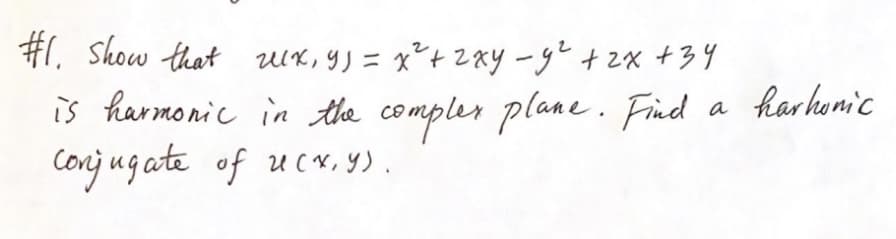 #1. Show that u(x, y) = x² + 2xy - y² + 2x + 3y
is harmonic in the complex plane. Find a harhonic
conjugate of u(x, y).